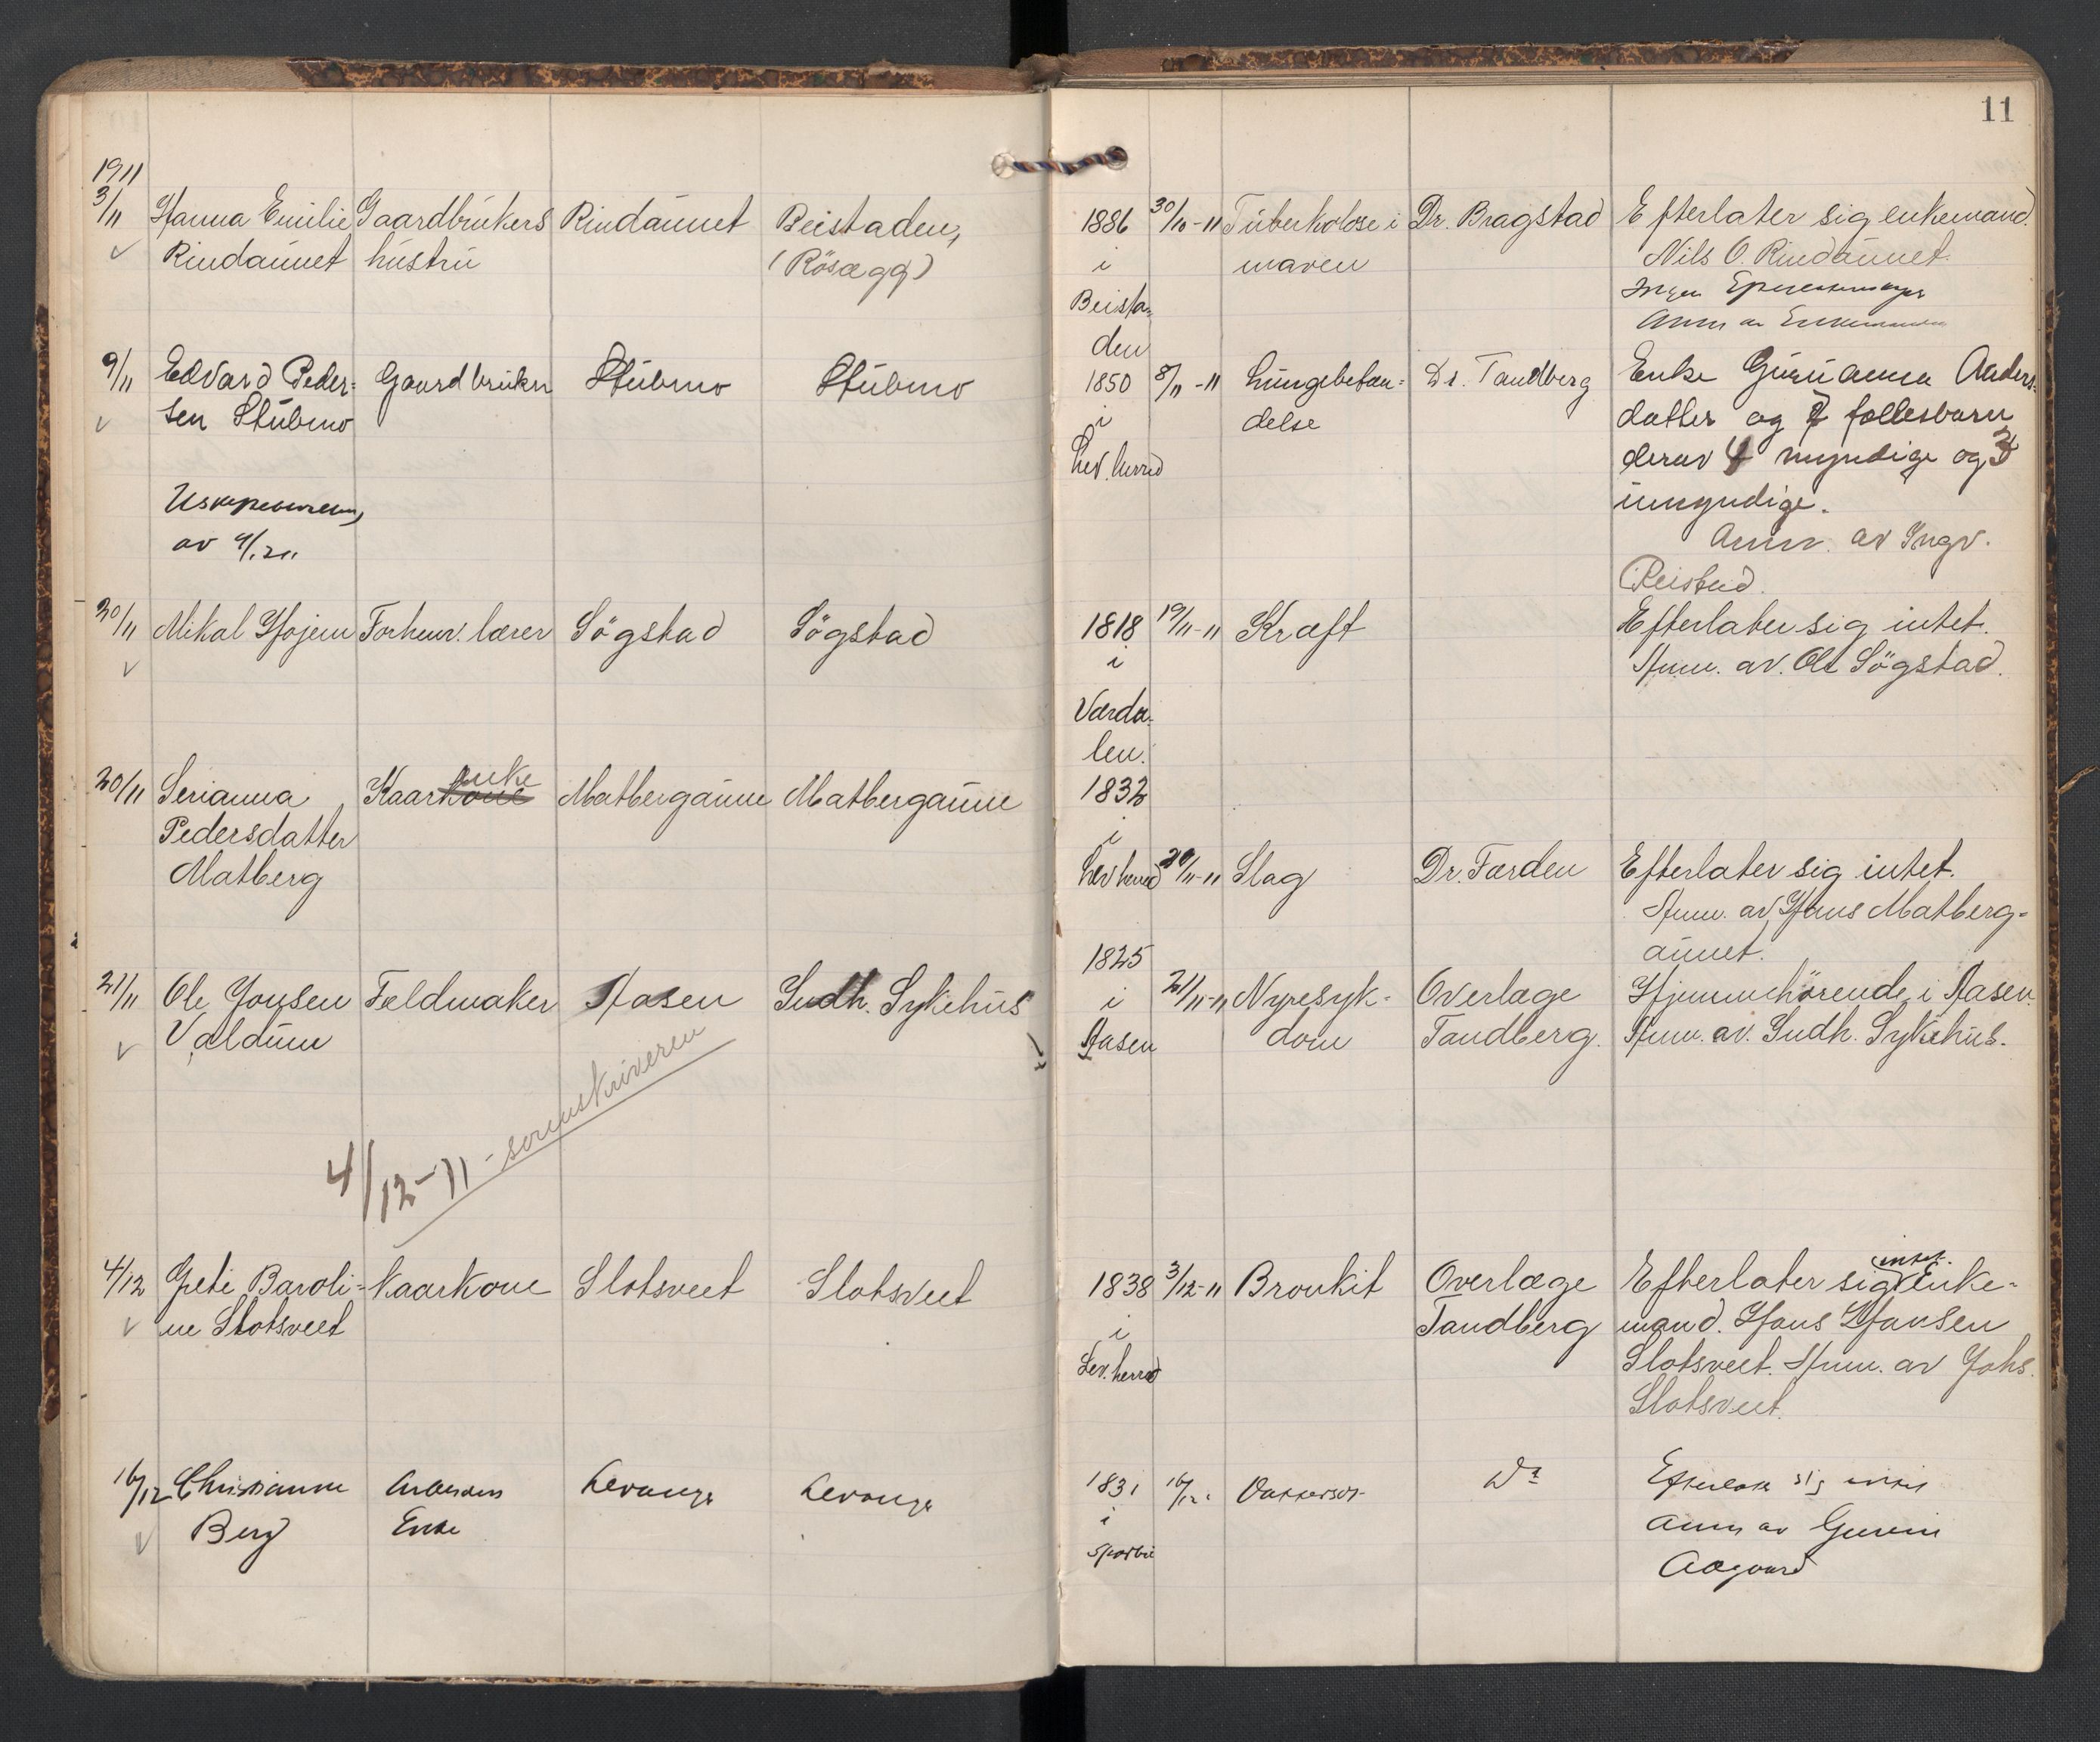 11
1911
3/11 Hanna Emilie Gaardbrukers Rindaunet Beistaden, 1886 30/10-11 Tuberkolose i Dr. Bragstad Efterlater sig enkemand.
Rindaunet hustru (Rösegg) i maven Nils O. Rindaunet.
Beista-
Anm av Enkemanden
den
9/11 Edvard Peder- Gaardbruker Stubmo Stubmo 1850 8/11-11 Lungebetæn- Dr. Tandberg Enke Guruanna Anders-
sen Stubmo i delse datter og 7 fellesbarn
Lev. herred derav 4 myndige og 3
umyndige.
av Anm. av Ingv.
Reistad.
20/11 Mikal Hojem Forhenv. lærer Sögstad Sögstad 1818 19/11-11 Kræft Efterlater sig intet.
i Anm. av. Ole Sögstad.
Værda-
len.
20/11 Serianna Kaarkone enke Matbergaune Matbergaune 1832
Pedersdatter i
Matberg Lev herred 20/11-11 Slag Dr. Færden Efterlater sig intet.
Anm. av Hans Matberg-
1825 aunet.
21/11 Ole Jonsen Feldmaker Aasen Indh. Sykehus i 21/11-11 Nyresyk- Overlæge Hjemmehörende i Aasen.
Valdum Aasen dom Tandberg. Anm. av. Indh. Sykehus.
4/12-11 - sorenskriveren
4/12 Grete Baroli- Kaarkone Slotsveet Slotsveet 1838 3/12-11 Bronkit Overlæge Efterlater sig intet. Enke-
ne Slotsveet i Tandberg mand. Hans Hansen
Lev. herred Slotsveet. Anm. av Johs.
Slotsveet.
16/12 Christianne Arbeiders Levanger Levanger 1831 16/12 Vattersot Do Efterlater sig intet
Berg Enke i Anm av
Sparbu Aagaard